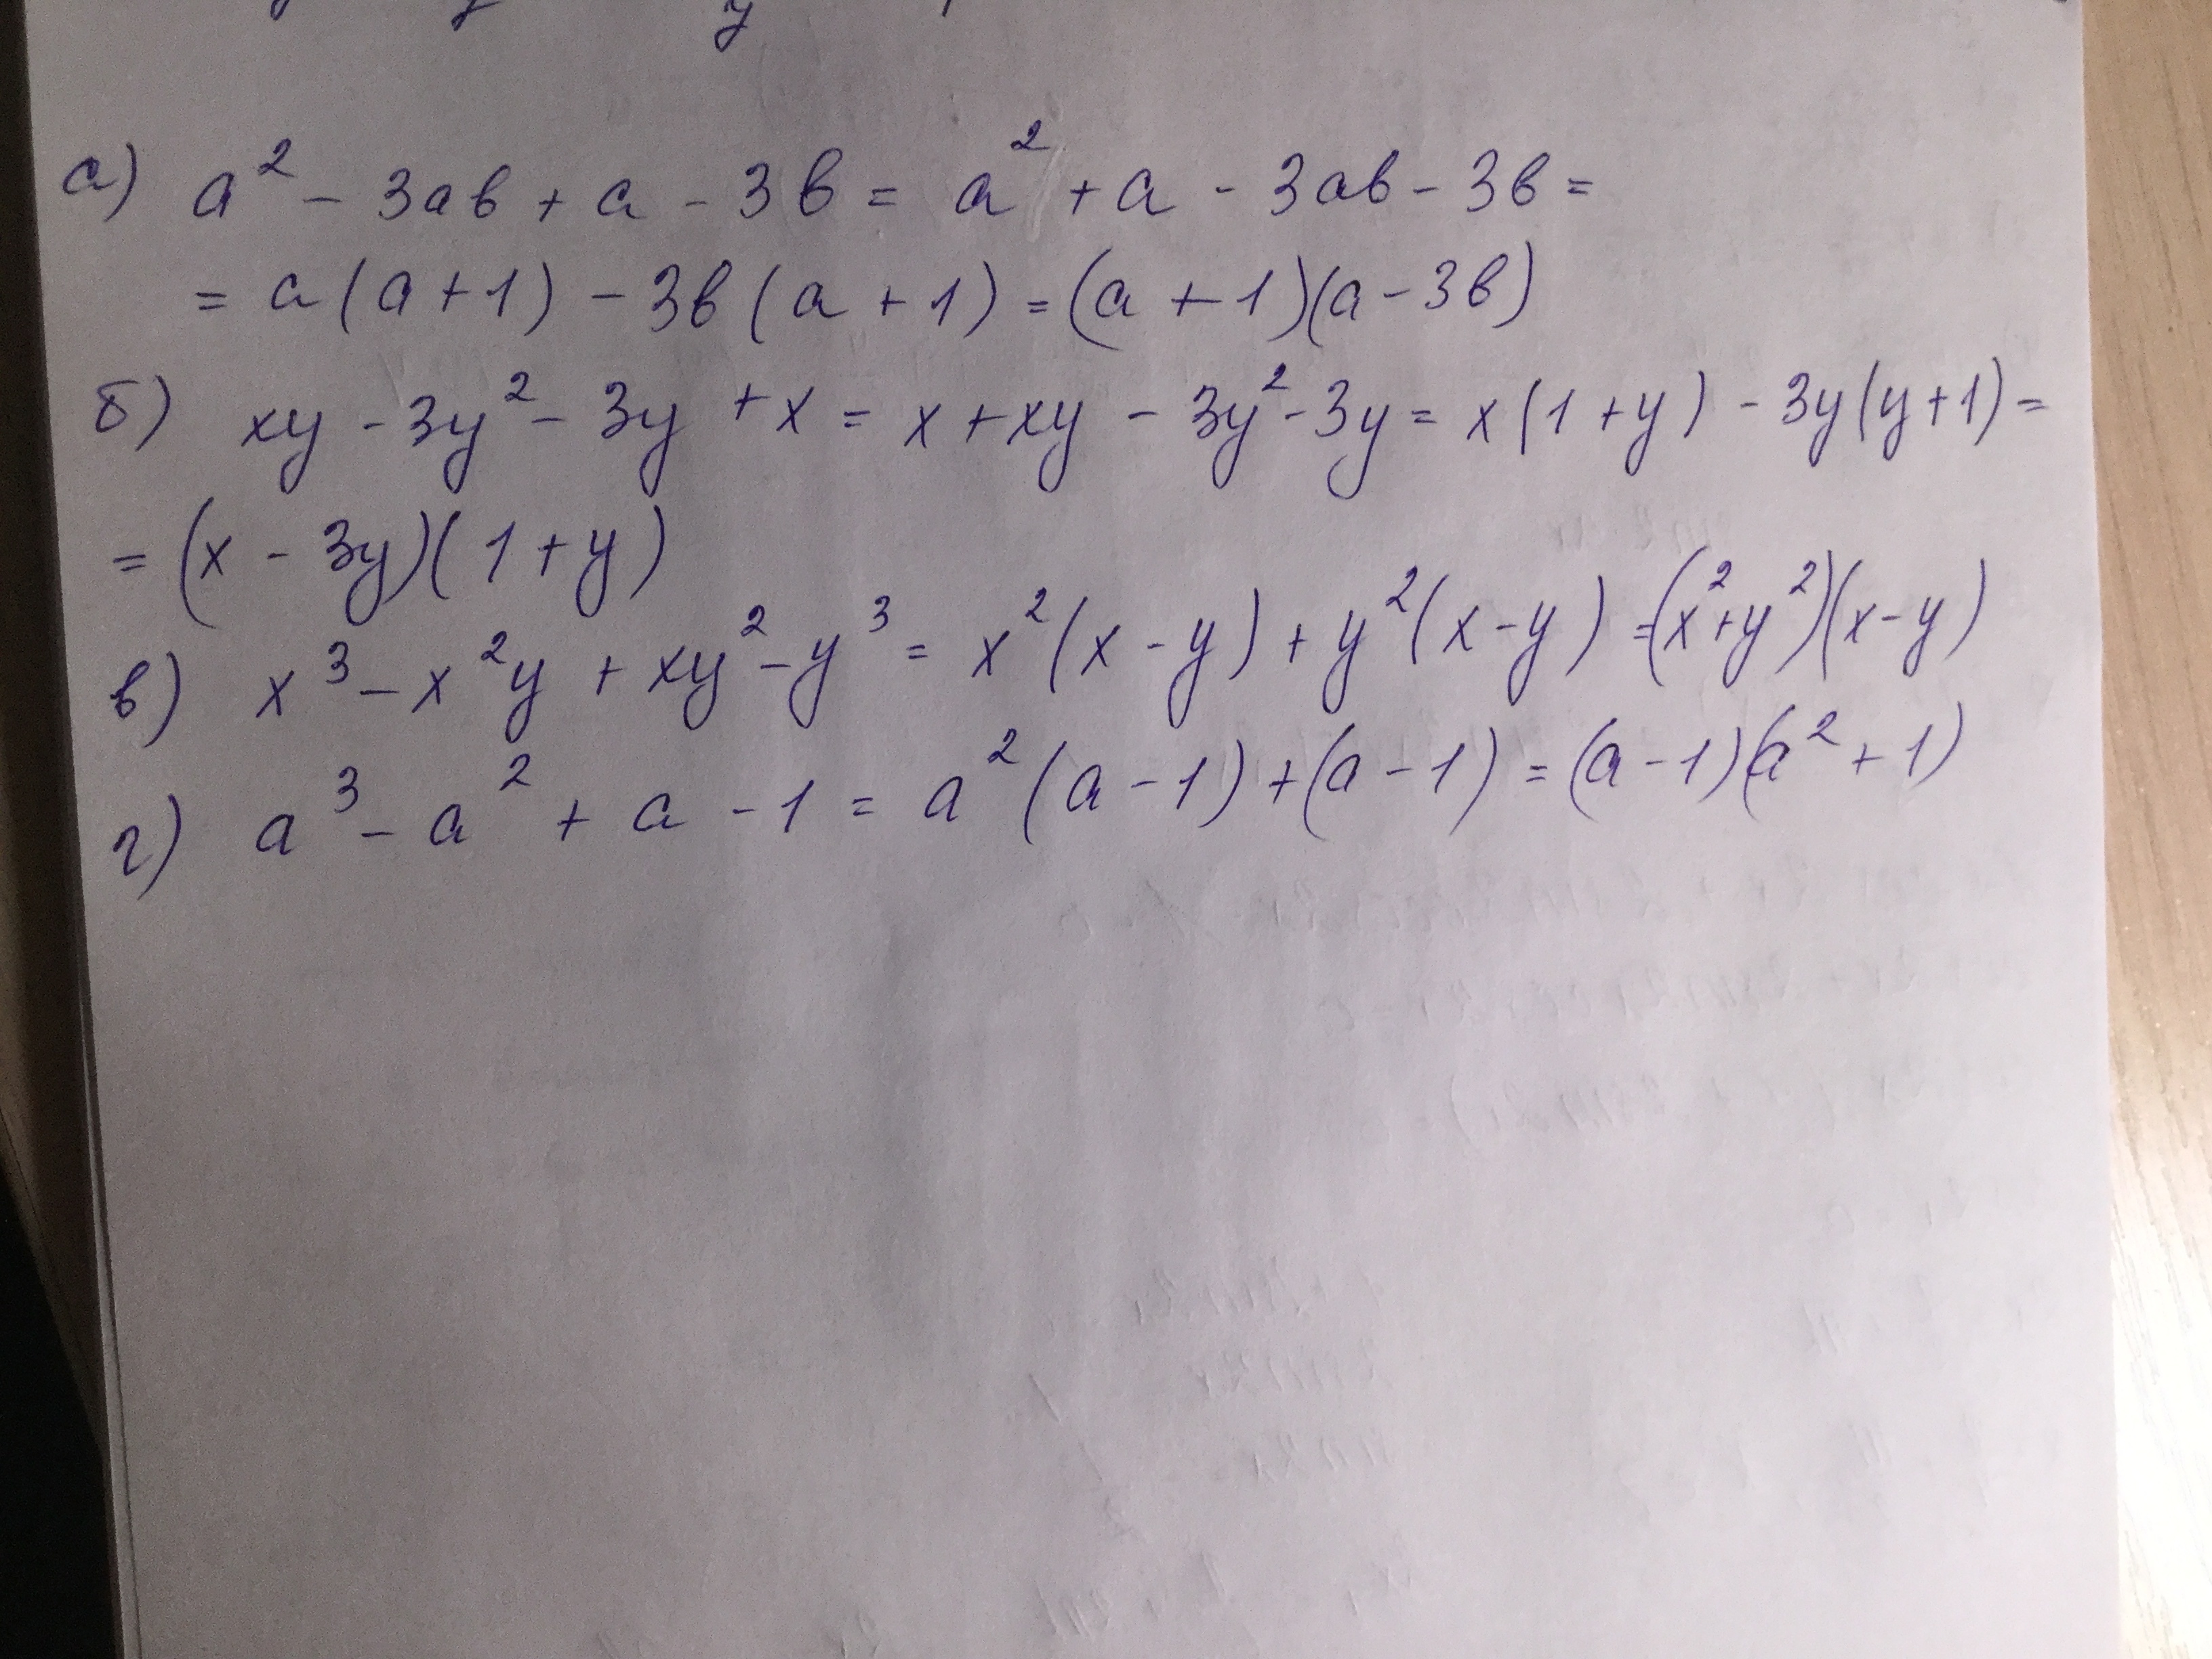 а) a² - 3ab + a - 3b = a² + a - 3ab - 3b =
= a(a+1) - 3b(a+1) = (a+1)(a-3b)
б) xy - 3y² - 3y + x = x + xy - 3y² - 3y = x(1+y) - 3y(y+1) =
= (x - 3y)(1+y)
в) x³ - x²y + xy² - y³ = x²(x-y) + y²(x-y) = (x²+y²)(x-y)
г) a³ - a² + a - 1 = a²(a-1) + (a-1) = (a-1)(a²+1)